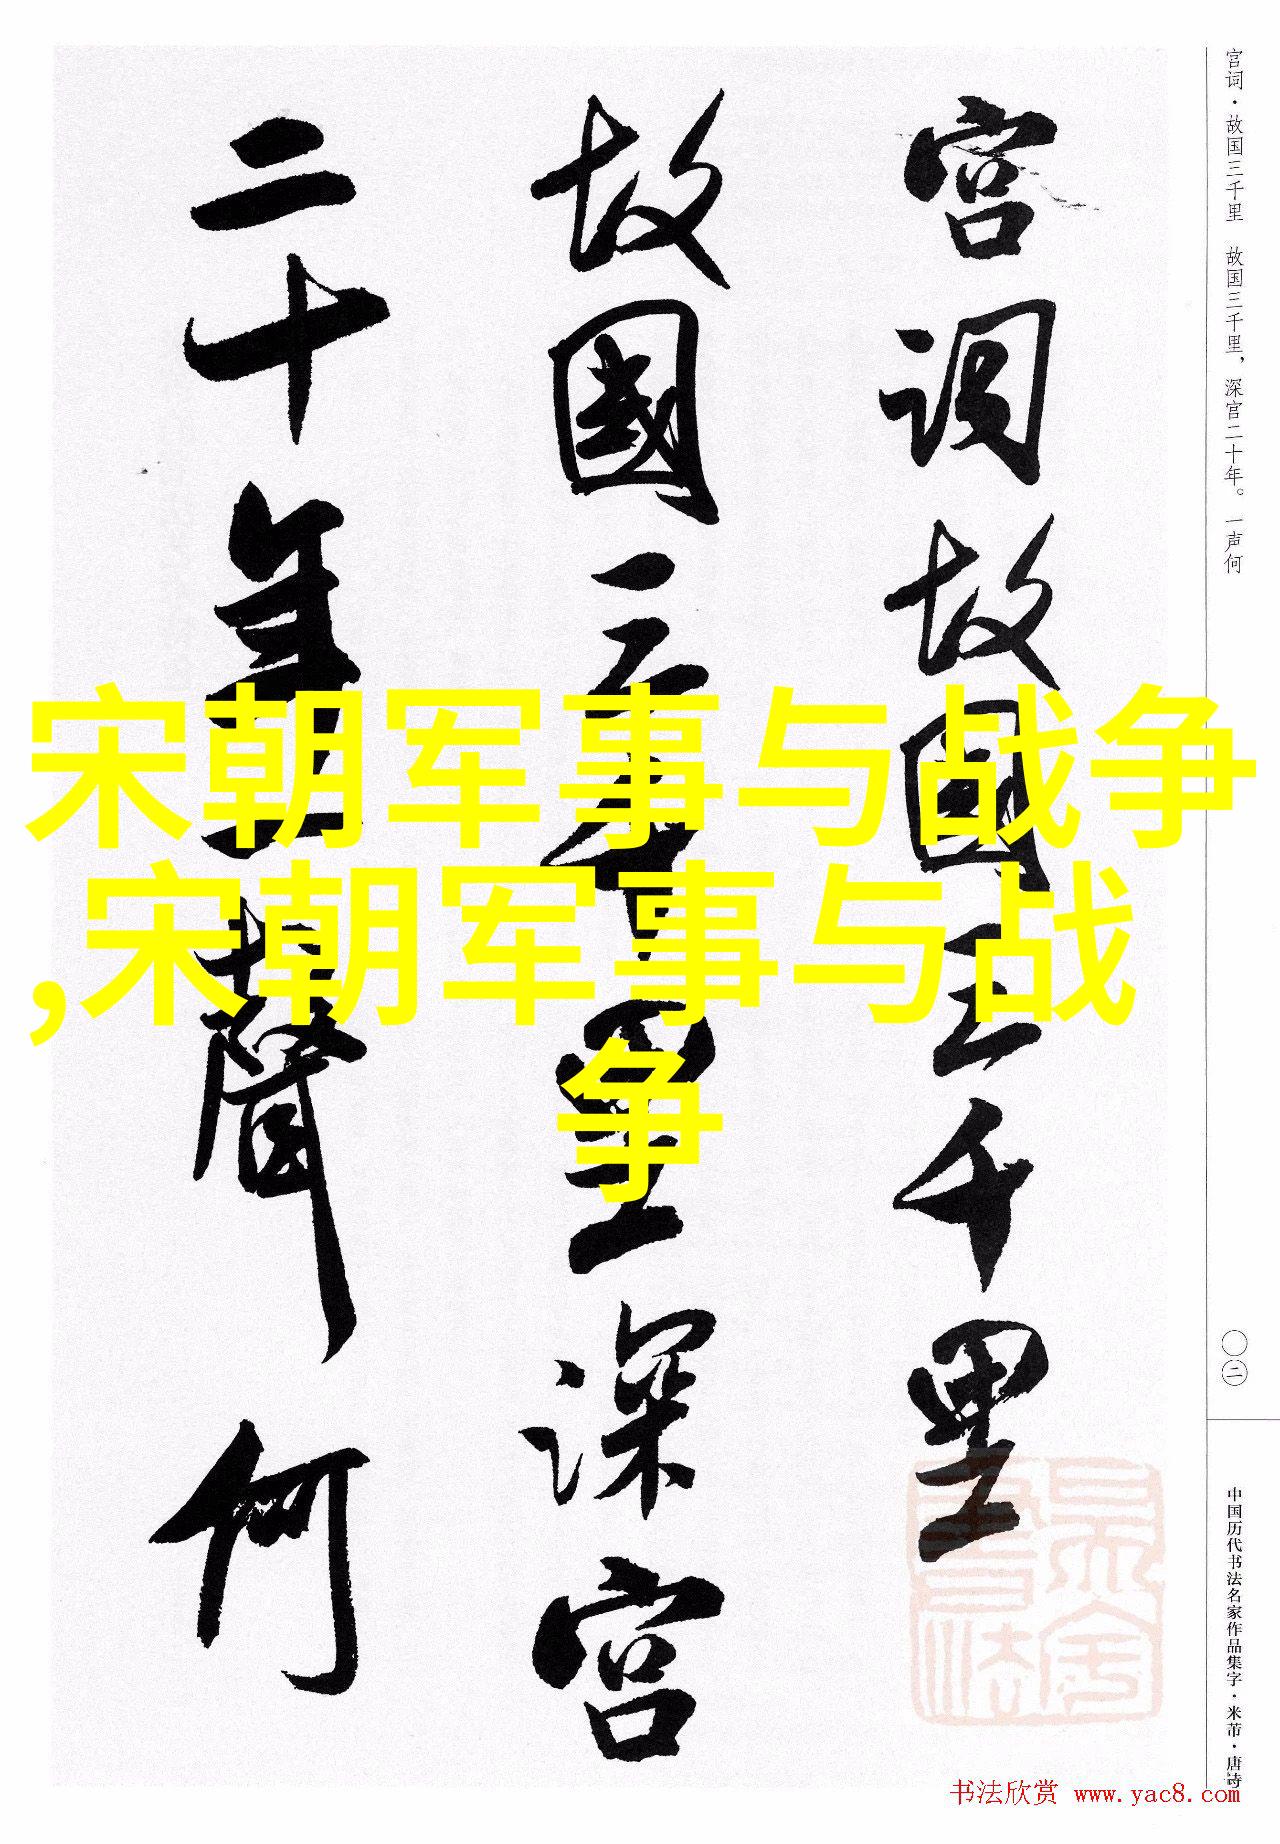 宫词·故国三千里 故国三千里，深宫二十年。一声何
宫词故國三千里
故國三千里深宫
二十年一聲何
宋朝军事与战争
,宋朝军事与战
争
〇二
中国历代书法名家作品集字·米芾·唐诗
书法欣赏 www.yac8.com